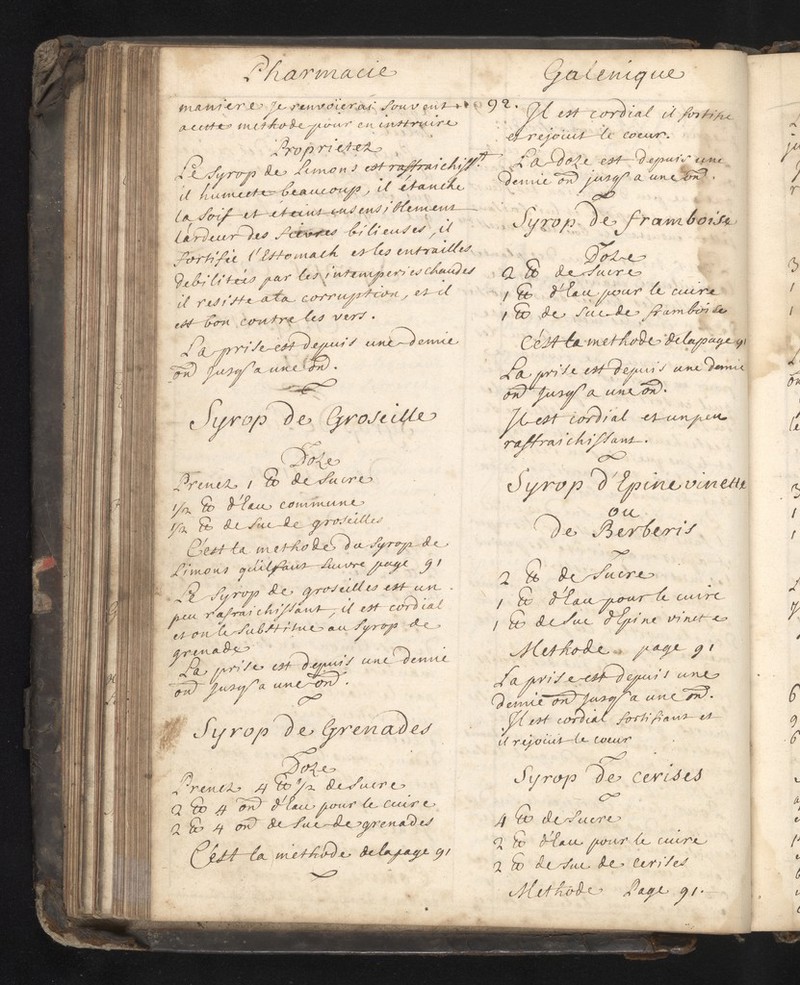 Pharmacie
maniere, Je renvoierai souvent
a cette methode pour en instruire
Proprietez
Le Syrop de Limons est raffraichisst.
il humecte beaucoup, il étanche
la soif et éteint insensiblement
lardeur des fievres bilieuses, il
fortifie l'Estomach et les entrailles
debilitées par les intemperies chaudes
il resiste a la corruption, et il
est bon contre les vers.
La prise est depuis une demie
on jusq' a une on.
Syrop de Groseille
Doze
Prenez 1 lb de Sucre
1/2 lb d'Eau commune
1/2 lb de Suc de groseilles
C'est la methode du Syrop de
Limons qu'il faut suivre page 91
Le Syrop de groseilles est un
peu rafraichissant, il est cordial
et on le substitue au Syrop de
grenade
La prise est depuis une demie
on jusq' a une on.
Syrop de Grenades
Doze
Prenez 4 lb 1/2 de Sucre
2 lb 4 on d'Eau pour le cuire
2 lb 4 on de Suc de grenades
C'est la methode de la page 91
Galenique
92.
Il est cordial il fortifie
et rejouit le coeur.
La Doze est depuis une
demie on jusq' a une on.
Syrop de framboise
Doze
2 lb de Sucre
1 lb d'Eau pour le cuire
1 lb de Suc de framboise
C'est la methode de la page 91
La prise est depuis une demie
on jusq' a une on.
Il est cordial et un peu
raffraichissant.
Syrop d'Epine vinette
ou
de Berberis
2 lb de Sucre
1 lb d'Eau pour le cuire
1 lb de Suc d'Epine vinete
Methode page 91
La prise est depuis une
demie on jusq' a une on.
Il est cordial fortifiant et
il rejouit le coeur
Syrop de cerises
4 lb de Sucre
2 lb d'Eau pour le cuire
2 lb de Suc de cerises
Methode Page 91.